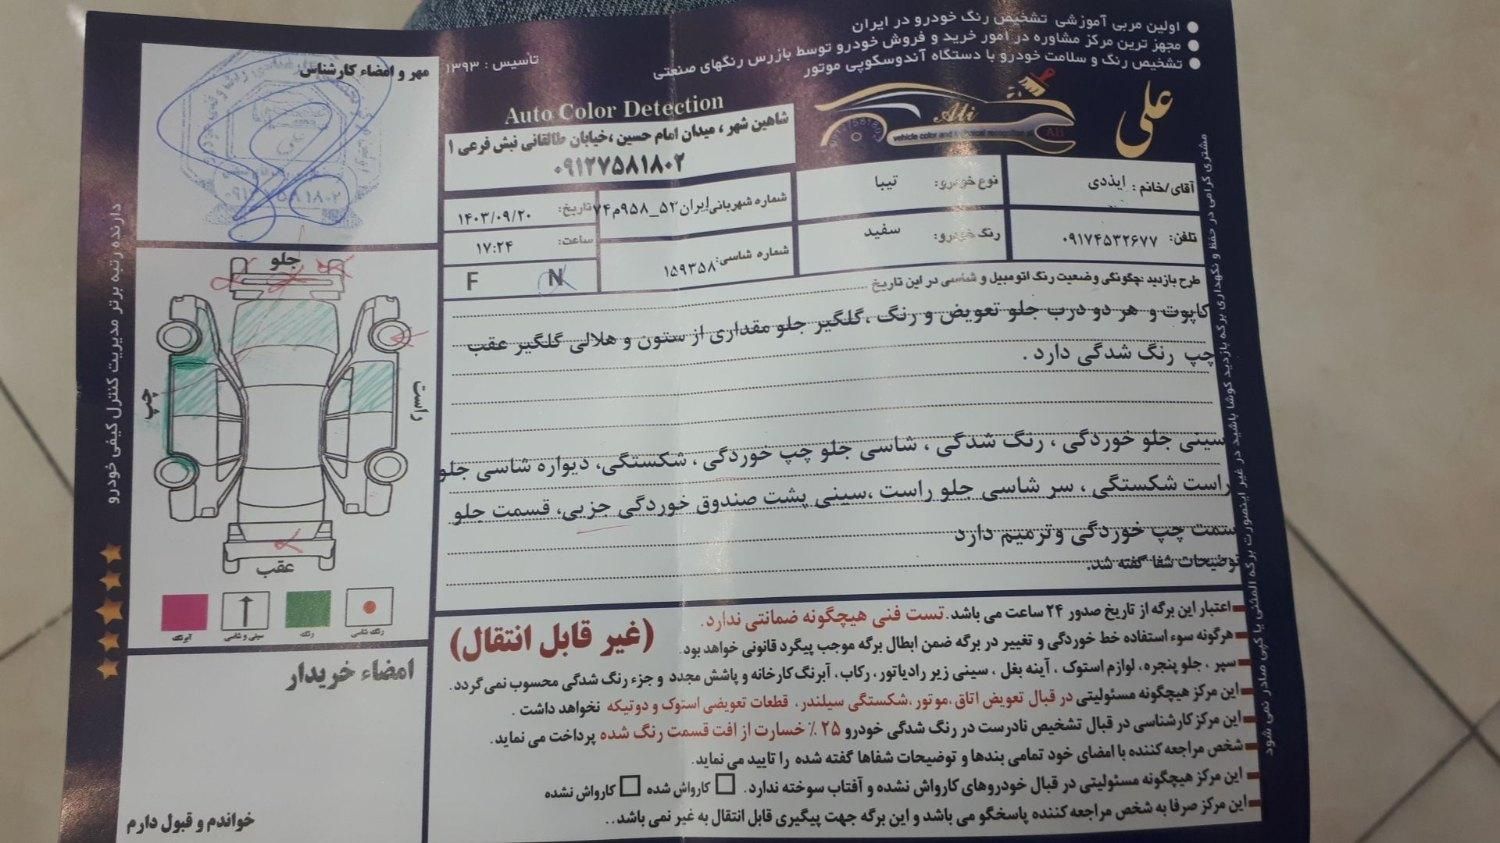 اولین مربی آموزشی تشخیص رنگ خودرو در ایران
مجهز ترین مرکز مشاوره در امور خرید و فروش خودرو توسط بازرس رنگهای صنعتی
تشخیص رنگ و سلامت خودرو با دستگاه آندوسکوپی موتور
تأسیس : ۱۳۹۳
مهر و امضاء کارشناس
علی
Ali
Auto Color Detection
شاهین شهر ، میدان امام حسین ،خیابان طالقانی نبش فرعی ۱
۰۹۱۲۷۵۸۱۸۰۲
آقای/خانم : ایذدی
نوع خودرو: تیبا
شماره شهربانی: ایران ۵۲_۹۵۸م۷۴
تاریخ: ۱۴۰۳/۰۹/۲۰
تلفن: ۰۹۱۷۴۵۳۲۶۷۷
رنگ خودرو: سفید
شماره شاسی: ۱۵۹۳۵۸
ساعت: ۱۷:۲۴
F N
طرح بازدید :چگونگی وضعیت رنگ اتومبیل و شاسی در این تاریخ
کاپوت و هر دو درب جلو تعویض و رنگ ،گلگیر جلو مقداری از ستون و هلالی گلگیر عقب
چپ رنگ شدگی دارد .
سینی جلو خوردگی ، رنگ شدگی ، شاسی جلو چپ خوردگی ، شکستگی، دیواره شاسی جلو
راست شکستگی ، سر شاسی جلو راست ،سینی پشت صندوق خوردگی جزیی، قسمت جلو
سمت چپ خوردگی وترمیم دارد
توضیحات شفا گفته شد.
جلو
چپ
راست
عقب
رنگ شاسی
رنگ
سینی و شاسی
آبرنگ
امضاء خریدار
خواندم و قبول دارم
اعتبار این برگه از تاریخ صدور ۲۴ ساعت می باشد. تست فنی هیچگونه ضمانتی ندارد.
هرگونه سوء استفاده خط خوردگی و تغییر در برگه ضمن ابطال برگه موجب پیگرد قانونی خواهد بود.
(غیر قابل انتقال)
سپر ، جلو پنجره، لوازم استوک ، آینه بغل ، سینی زیر رادیاتور، رکاب، آبرنگ کارخانه و پاشش مجدد و جزء رنگ شدگی محسوب نمی گردد.
این مرکز هیچگونه مسئولیتی در قبال تعویض اتاق،موتور،شکستگی سیلندر، قطعات تعویضی استوک و دوتیکه نخواهد داشت .
این مرکز کارشناسی در قبال تشخیص نادرست در رنگ شدگی خودرو ۲۵ ٪ خسارت از افت قسمت رنگ شده پرداخت می نماید.
شخص مراجعه کننده با امضای خود تمامی بندها و توضیحات شفاها گفته شده را تایید می نماید.
این مرکز هیچگونه مسئولیتی در قبال خودروهای کارواش نشده و آفتاب سوخته ندارد. کارواش شده کارواش نشده
این مرکز صرفا به شخص مراجعه کننده پاسخگو می باشد و این برگه جهت پیگیری قابل انتقال به غیر نمی باشد..
دارنده رتبه برتر مدیریت کنترل کیفی خودرو
مشتری گرامی در حفظ و نگهداری برگه بازدید کوشا باشید در غیر اینصورت برگه المثنی یا کپی صادر نمی شود